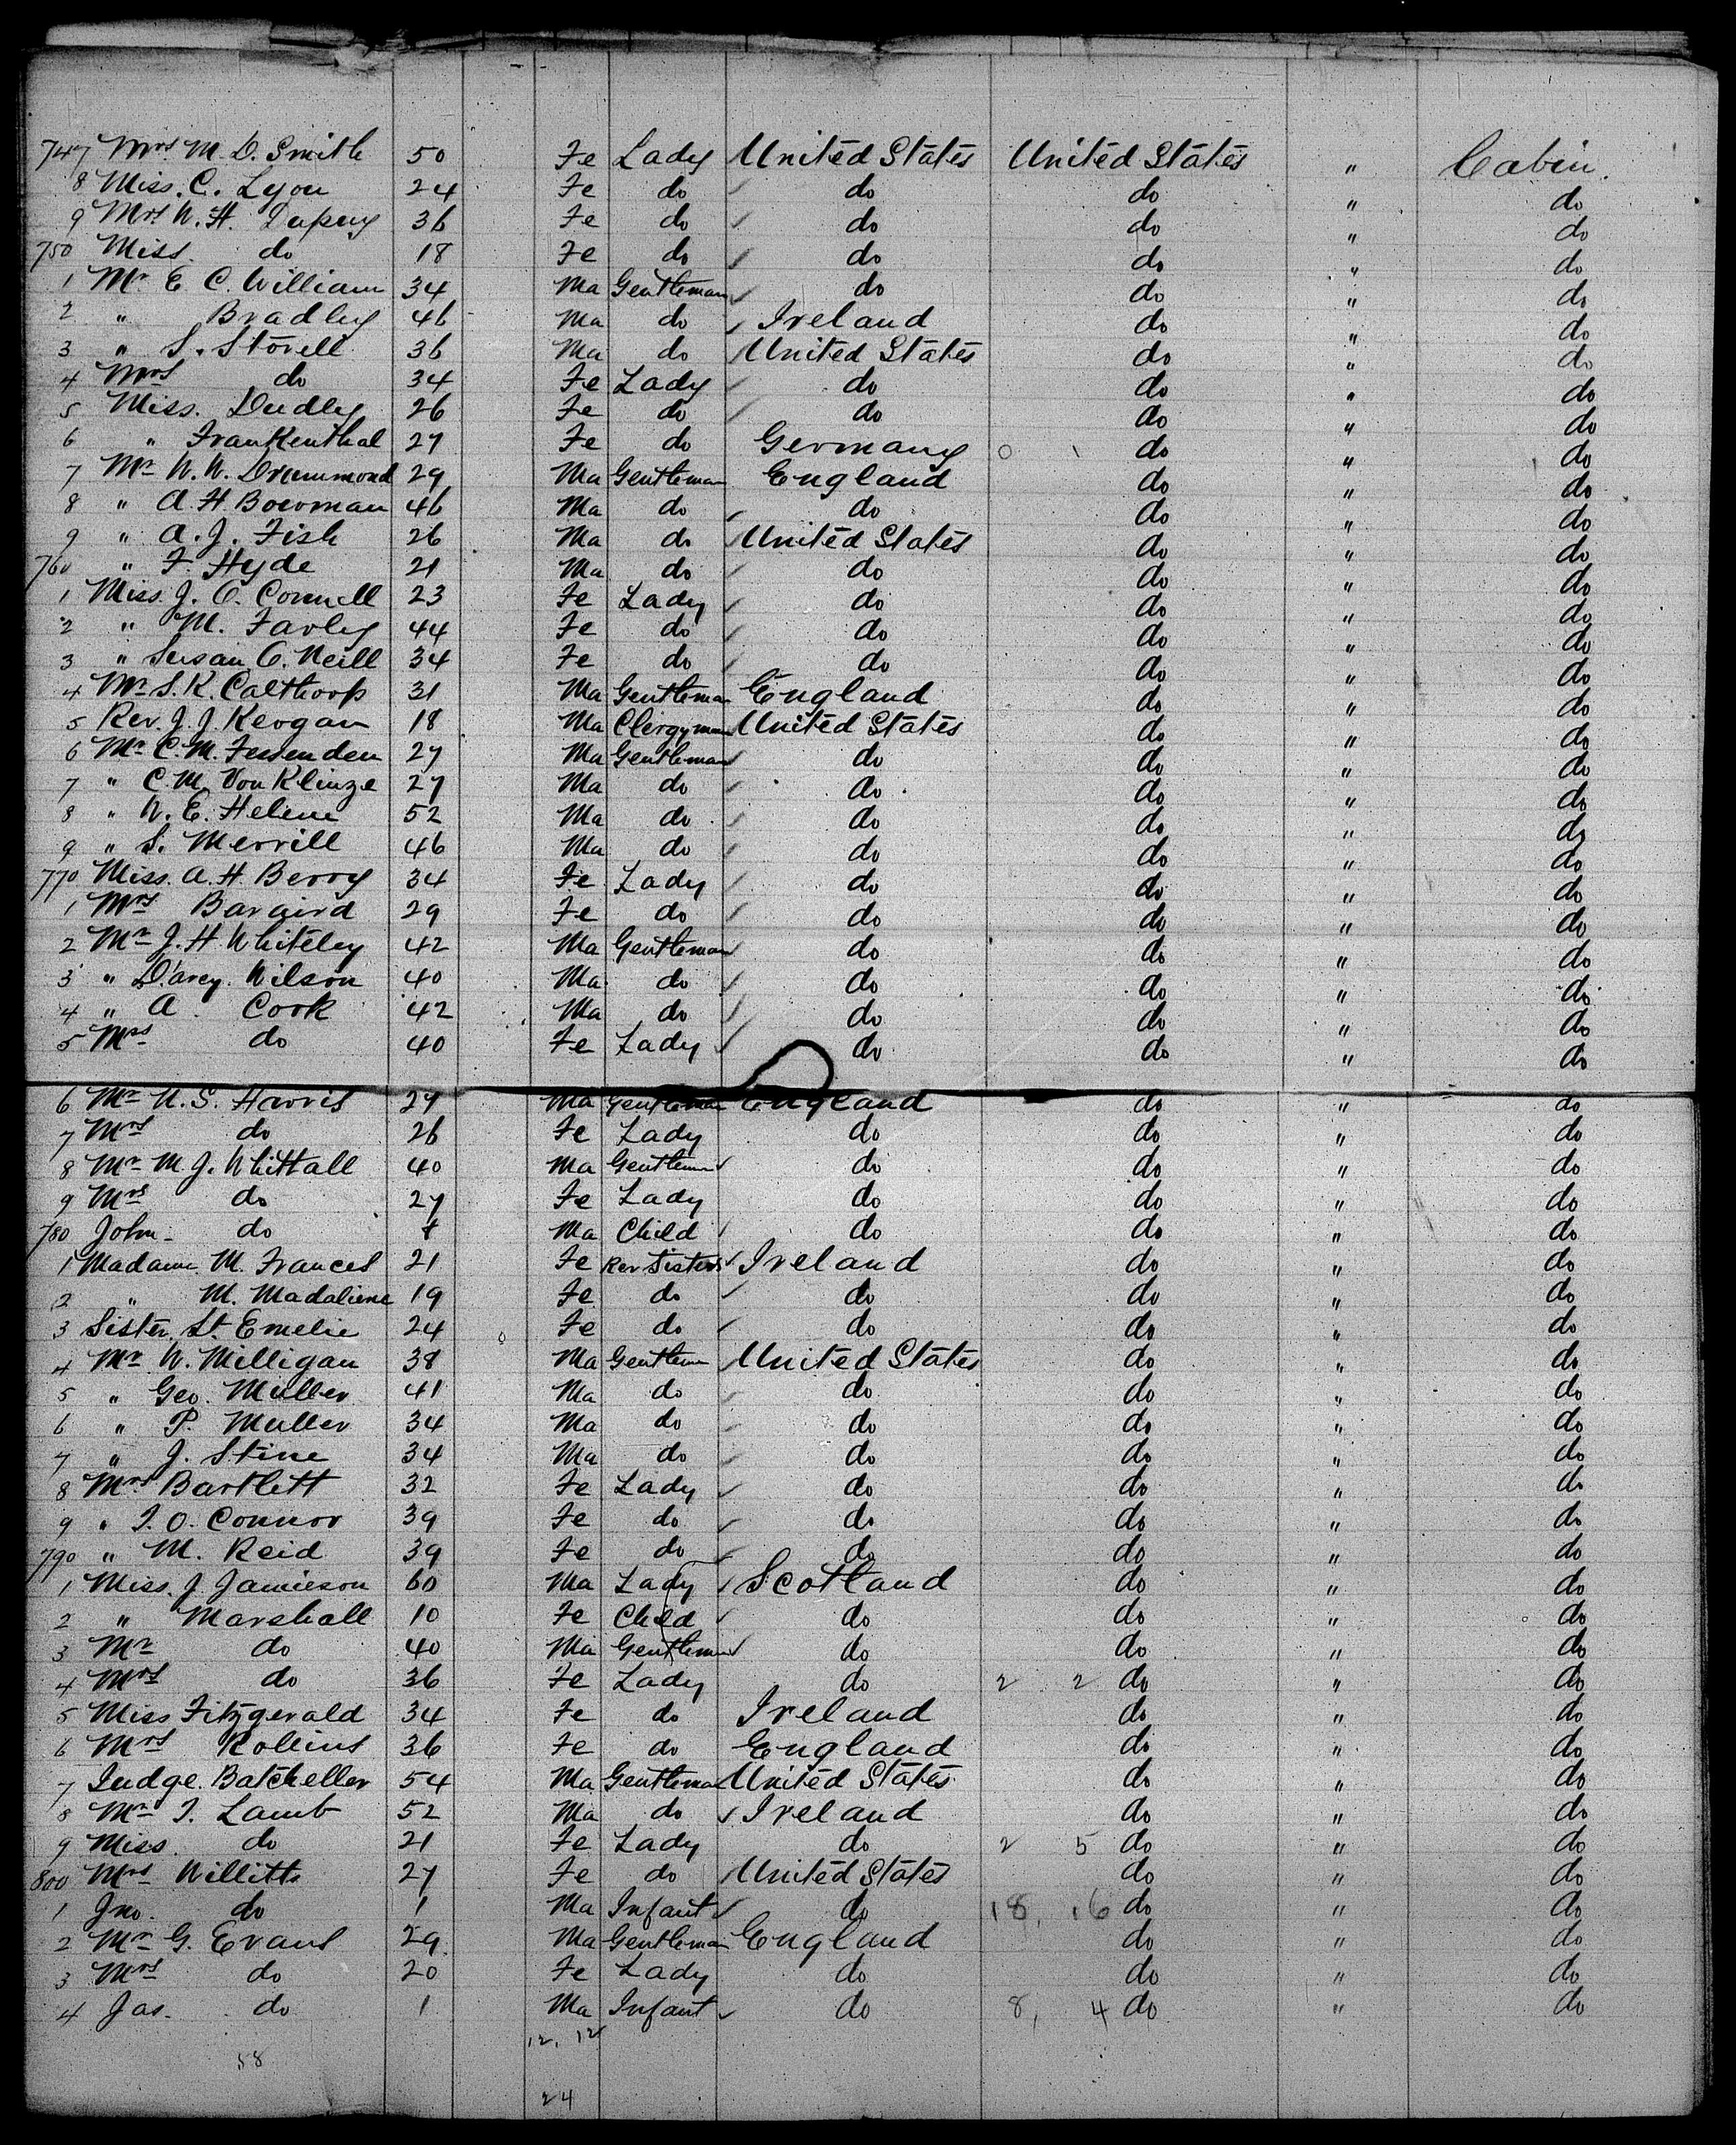 747 Mrs M. D. Smith 50 Fe Lady United States United States " Cabin.
8 Miss. C. Lyon 24 Fe do do do " do
9 Mrs W. H. Dupuy 36 Fe do do do " do
750 Miss. do 18 Fe do do do " do
1 Mr E C. William 34 Ma Gentleman do do " do
2 " Bradley 46 Ma do Ireland do " do
3 " S. Storell 36 Ma do United States do " do
4 Mrs do 34 Fe Lady do do " do
5 Miss. Dudley 26 Fe do do do " do
6 " Frankenthal 27 Fe do Germany 0 1 do " do
7 Mr W. W. Drummond 29 Ma Gentleman England do " do
8 " A. H. Bowman 46 Ma do do do " do
9 " A. J. Fish 26 Ma do United States do " do
760 " F. Hyde 21 Ma do do do " do
1 Miss. J. O. Connell 23 Fe Lady do do " do
2 " M. Farley 44 Fe do do do " do
3 " Susan O. Neill 34 Fe do do do " do
4 Mr S. K. Calthorp 31 Ma Gentleman England do " do
5 Rev. J. J. Keogan 18 Ma Clergyman United States do " do
6 Mr C. M. Fessenden 27 Ma Gentleman do do " do
7 " C. M. Von Klinze 27 Ma do do do " do
8 " W. E. Helene 52 Ma do do do " do
9 " S. Merrill 46 Ma do do do " do
770 Miss. A. H. Berry 34 Fe Lady do do " do
1 Mrs Baraird 29 Fe do do do " do
2 Mr J. H. Whiteley 42 Ma Gentleman do do " do
3 " D'arcy. Wilson 40 Ma do do do " do
4 " A. Cook 42 Ma do do do " do
5 Mrs do 40 Fe Lady do do " do
6 Mr W. S. Harris 27 Ma Gentleman England do " do
7 Mrs do 26 Fe Lady do do " do
8 Mr M. J. Whittall 40 Ma Gentleman do do " do
9 Mrs do 27 Fe Lady do do " do
780 John do Ma Child do do " do
1 Madame M. Frances 21 Fe Rev Sisters Ireland do " do
2 " M. Madaliene 19 Fe do do do " do
3 Sister. St. Emelie 24 Fe do do do " do
4 Mr W. Milligan 38 Ma Gentlemn United States do " do
5 " Geo. Muller 41 Ma do do do " do
6 " P. Muller 34 Ma do do do " do
7 " J. Stine 34 Ma do do do " do
8 Mrs Bartlett 32 Fe Lady do do " do
9 " J. O. Connor 39 Fe do do do " do
790 " M. Reid 39 Fe do do do " do
1 Miss. J. Jamieson 60 Ma Lady Scotland do " do
2 " Marshall 10 Fe Child do do " do
3 Mr do 40 Ma Gentleman do do " do
4 Mrs do 36 Fe Lady do 2 2 do " do
5 Miss Fitzgerald 34 Fe do Ireland do " do
6 Mrs Rollins 36 Fe do England do " do
7 Judge. Batcheller 54 Ma Gentleman United States do " do
8 Mr T. Lamb 52 Ma do Ireland do " do
9 Miss. do 21 Fe Lady do 2 5 do " do
800 Mrs Willitts 27 Fe do United States do " do
1 Jno. do 1 Ma Infant do 18, 16 do " do
2 Mr G. Evans 29 Ma Gentleman England do " do
3 Mrs do 20 Fe Lady do do " do
4 Jas. do 1 Ma Infant do 8, 4 do " do
12, 12
58
24